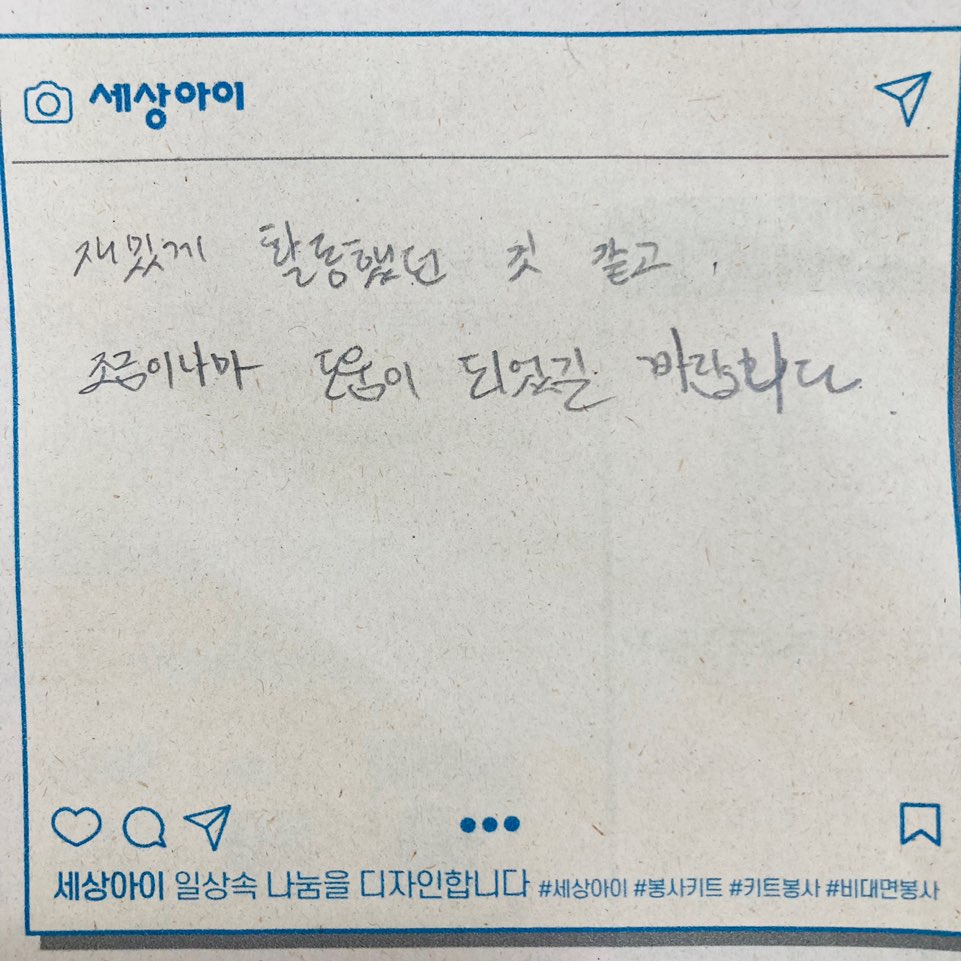 세상아이
재밌게 활동했던 것 같고,
조금이나마 도움이 되었길 바랍니다
세상아이 일상속 나눔을 디자인합니다 #세상아이 #봉사키트 #키트봉사 #비대면봉사